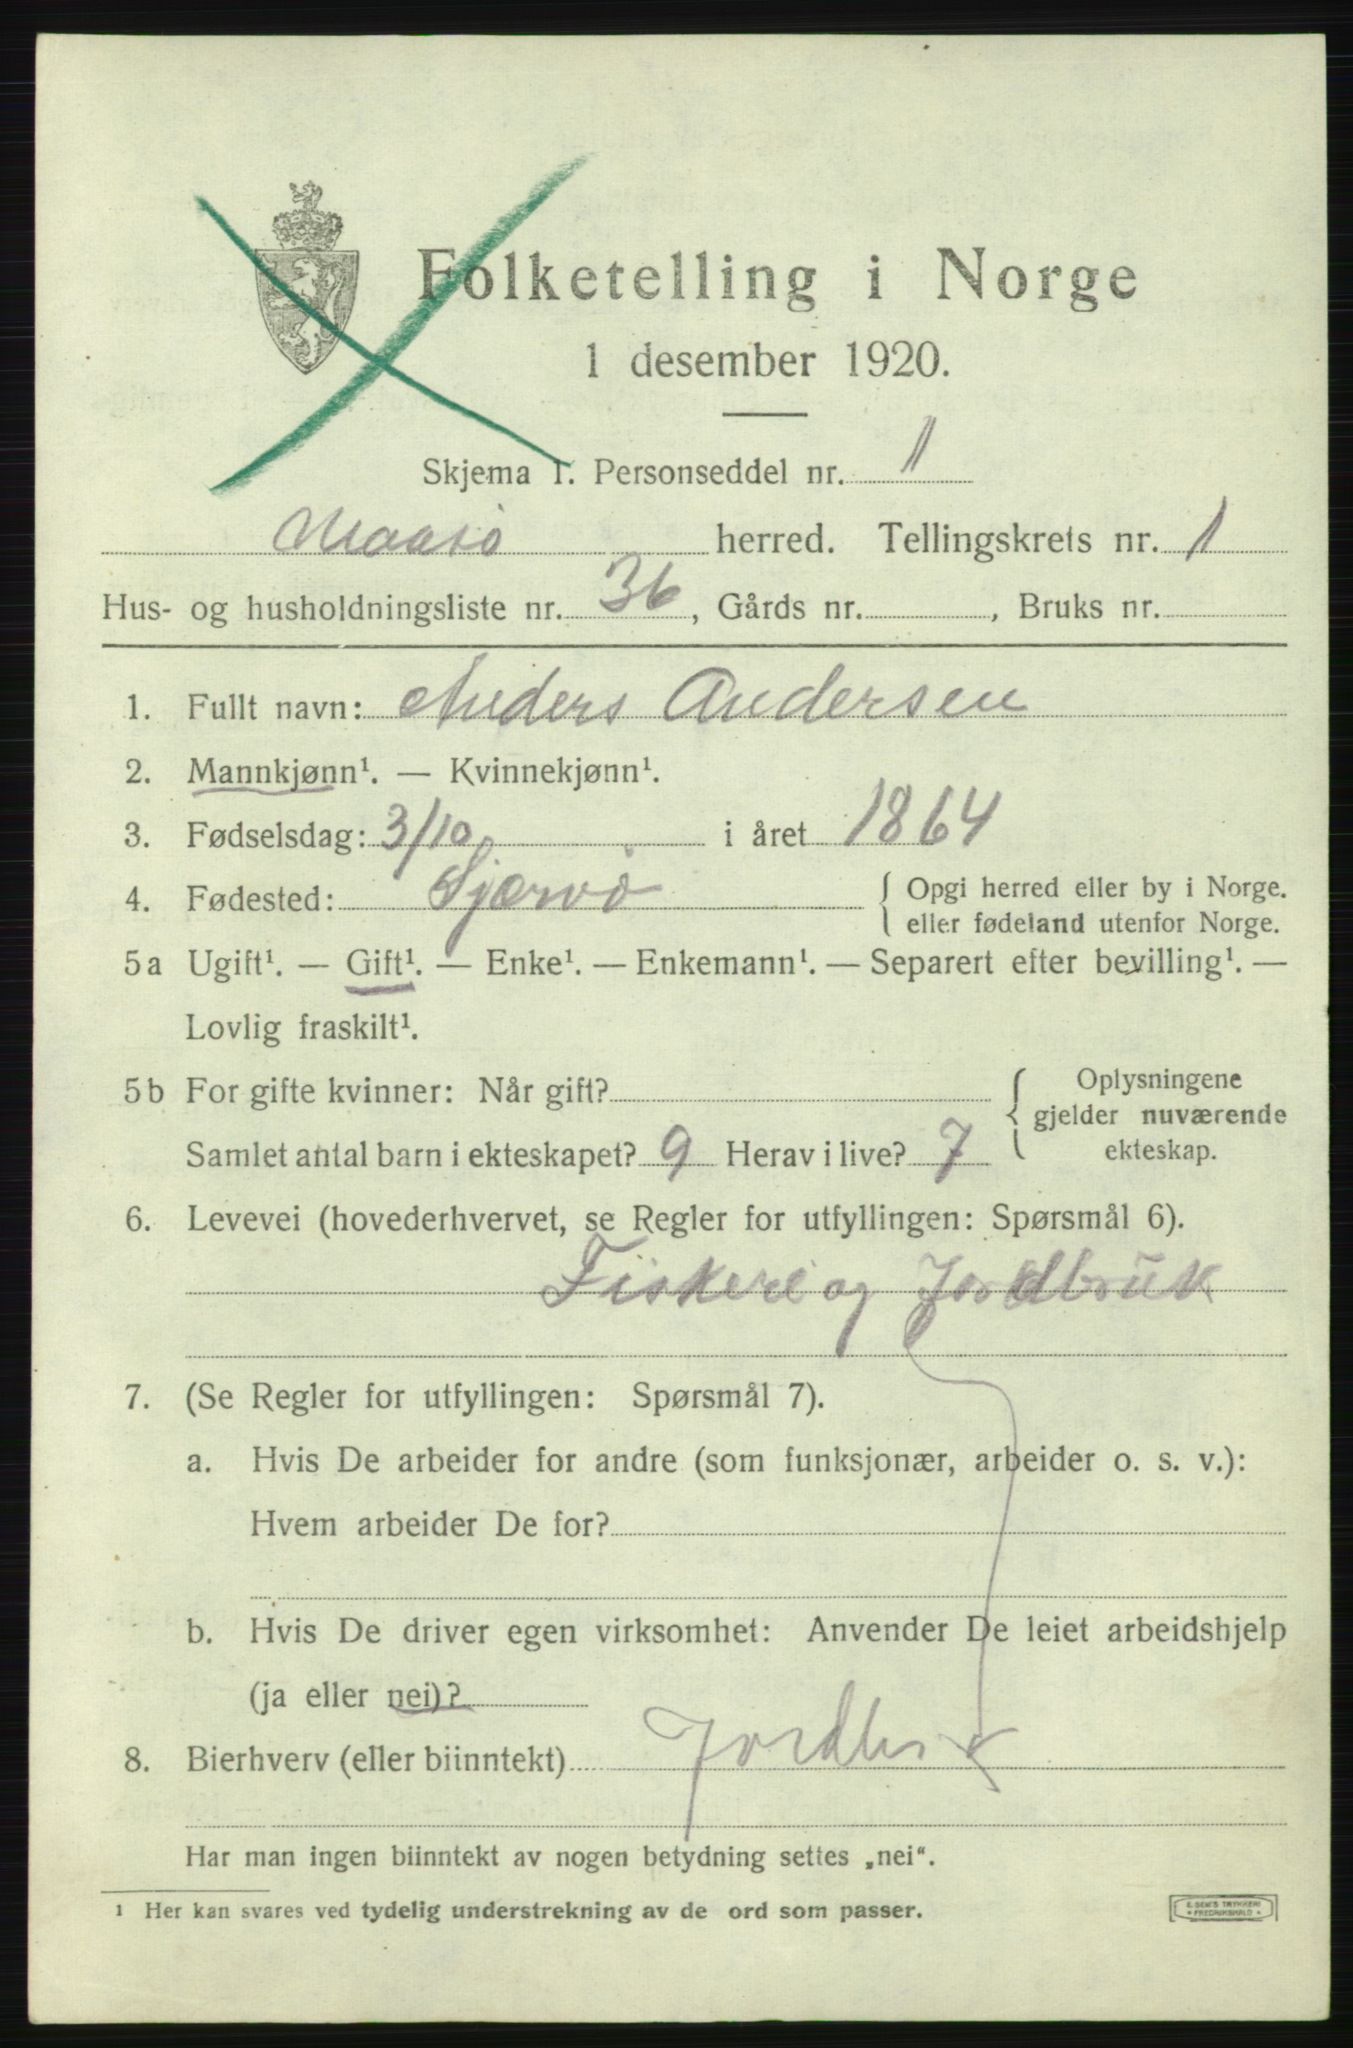 Folketelling i Norge
1 desember 1920.
Skjema 1. Personseddel nr. 1
Maasø herred. Tellingskrets nr. 1
Hus- og husholdningsliste nr. 36, Gårds nr. , Bruks nr.
1. Fullt navn: Anders Andersen
2. Mannkjønn¹. — Kvinnekjønn¹.
3. Fødselsdag: 3/10 i året 1864
4. Fødested: Sjærvø { Opgi herred eller by i Norge.
eller fødeland utenfor Norge.
5a Ugift¹. — Gift¹. — Enke¹. — Enkemann¹. — Separert efter bevilling¹. —
Lovlig fraskilt¹.
5b For gifte kvinner: Når gift?
Samlet antal barn i ekteskapet? 9 Herav i live? 7
Oplysningene
gjelder nuværende
ekteskap.
6. Levevei (hovederhvervet, se Regler for utfyllingen: Spørsmål 6).
Fiskeri og Jordbruk
7. (Se Regler for utfyllingen: Spørsmål 7).
a. Hvis De arbeider for andre (som funksjonær, arbeider o. s. v.):
Hvem arbeider De for?
b. Hvis De driver egen virksomhet: Anvender De leiet arbeidshjelp
(ja eller nei)?
8. Bierhverv (eller biinntekt) Jordbr
Har man ingen biinntekt av nogen betydning settes „nei“.
¹ Her kan svares ved tydelig understrekning av de ord som passer.
E. SEM'S TRYKKERI
• FREDRIKSHALD •